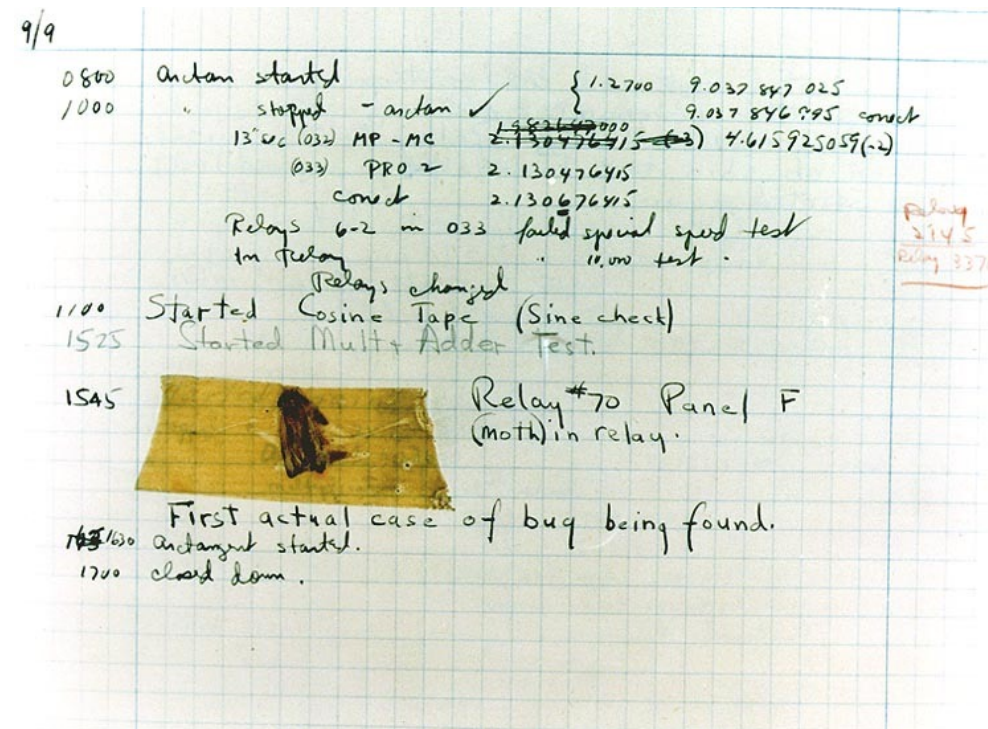 9/9
0800 arctan started { 1.2700 9.037 847 025
1000 " stopped - arctan ✓ 9.037 846 995 correct
13"uc (032) MP - MC 2.130476415 (-3) 4.615925059(-2)
(033) PRO 2 2.130476415
correct 2.130676415
Relays 6-2 in 033 failed special speed test
In Relay " 10,000 test .
Relays changed
Relay
2145
Relay 337
1100 Started Cosine Tape (Sine check)
1525 Started Mult + Adder Test.
1545 Relay #70 Panel F
(moth) in relay.
First actual case of bug being found.
1630 arctangent started.
1700 closed down.